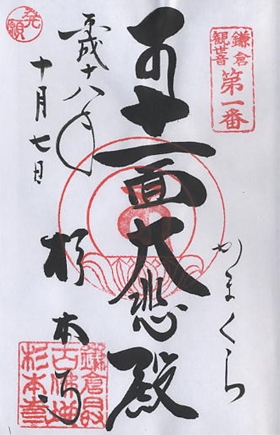 鎌倉
観世音
第一番
かまくら
十一面大悲殿
杉本寺
発願
平成十八年
十月七日
鎌倉最
古佛地
杉本寺